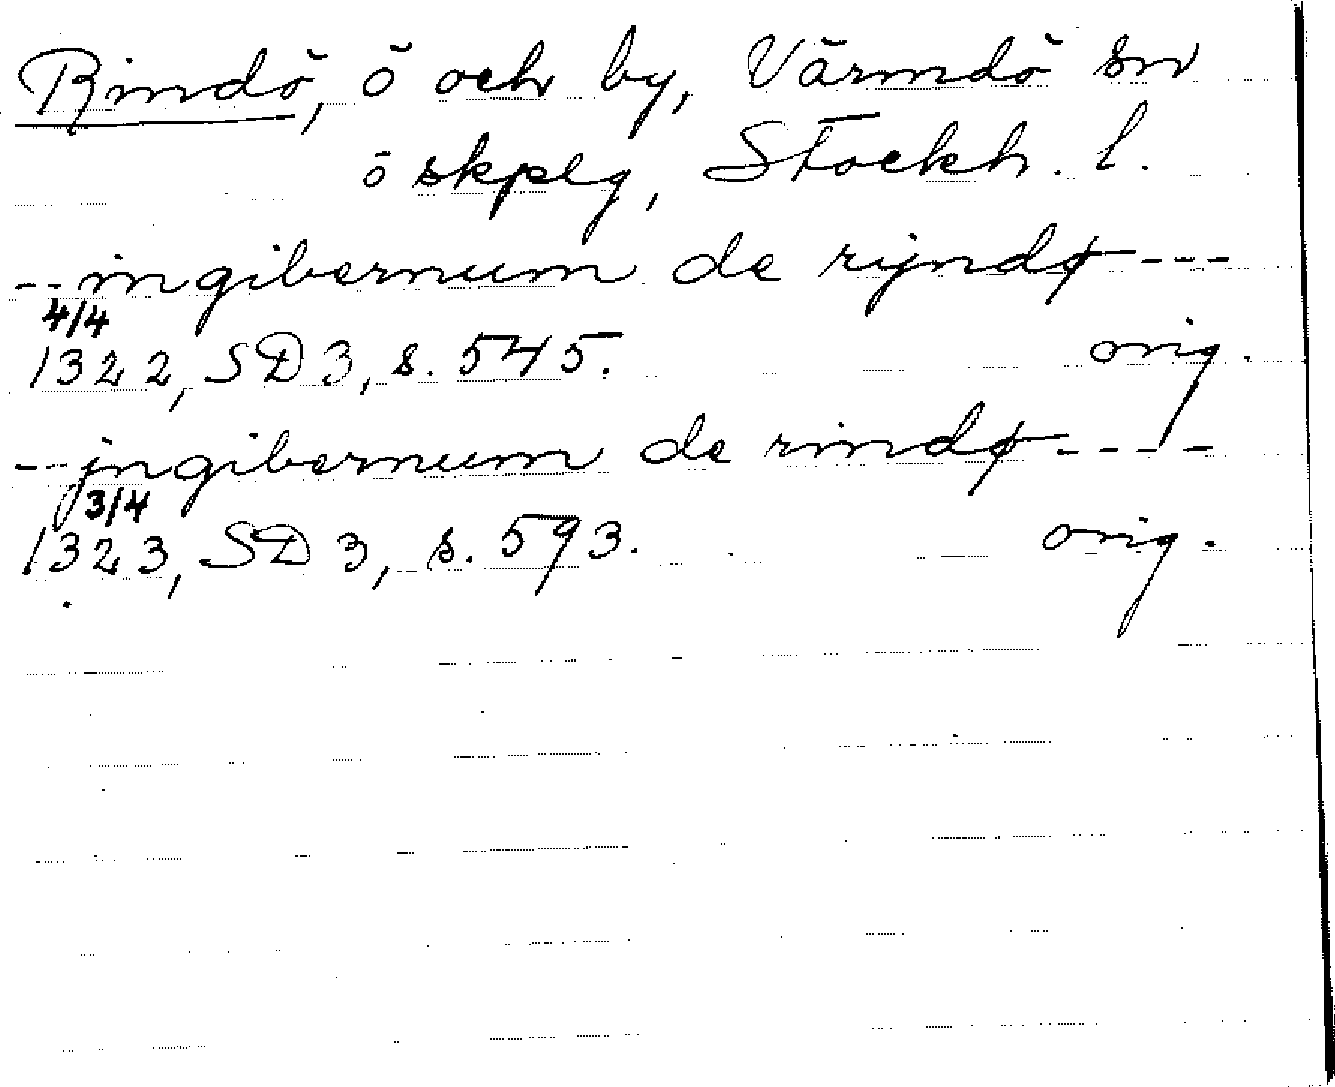 Rindö, ö och by, Värmdö sn
ö skplg, Stockh. l.
--ingibernum de rijndø---
4/4
1322, SD 3, s. 545. orig.
--jngibernum de rindø----
3/4
1323, SD 3, s. 593. orig.